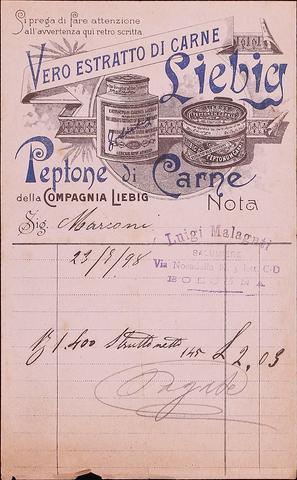 Si prega di fare attenzione
all'avvertenza qui retro scritta
VERO ESTRATTO DI CARNE
Liebig
Peptone di Carne
della COMPAGNIA LIEBIG
Nota
Sig. Marconi
Luigi Malaguti
SALUMIERE
Via Nosadella N.
BOLOGNA
23/5/98
1.400 Strutto netto 145 £ 2,03
Pagato